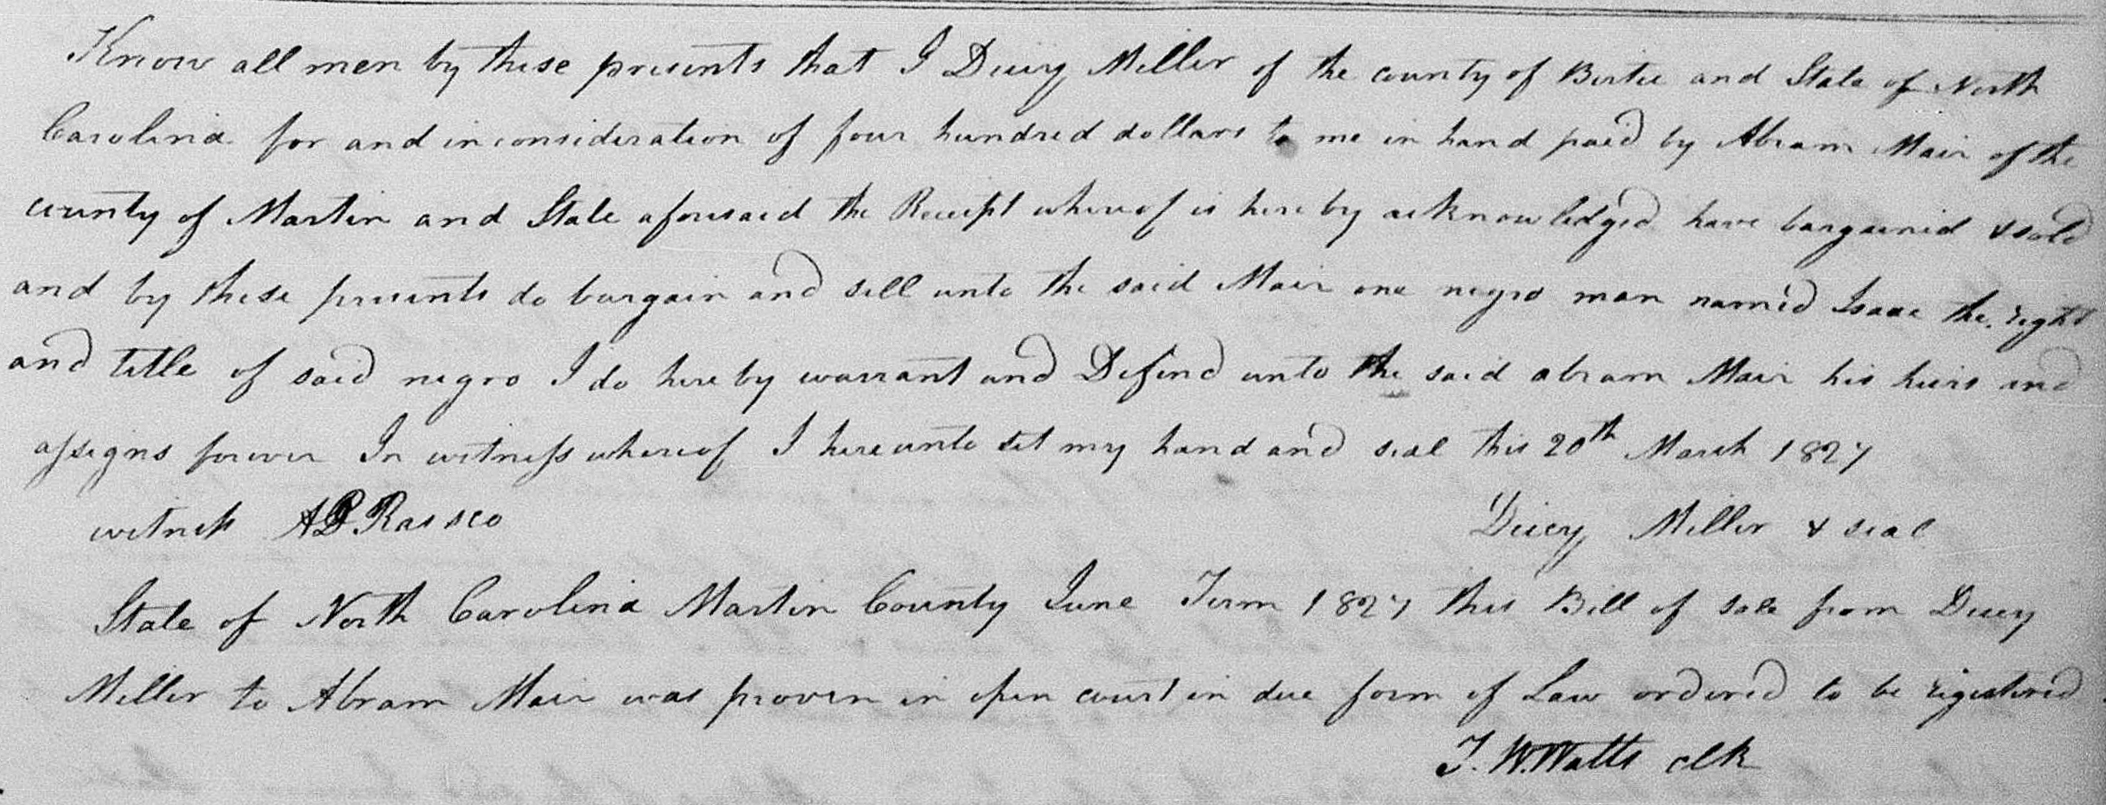 Know all men by these presents that I Dicey Miller of the county of Bertie and State of North
Carolina for and in consideration of four hundred dollars to me in hand paid by Abram Mair of the
county of Martin and State aforesaid the Receipt whereof is here by acknowledged have bargained & sold
and by these presents do bargain and sell unto the said Mair one negro man named Isaac the right
and title of said negro I do here by warrant and Defend unto the said abram Mair his heirs and
assigns forever In witness whereof I here unto set my hand and seal this 20th March 1827
witness A B Rassco
Dicey Miller & seal
State of North Carolina Martin County June Term 1827 this Bill of sale from Dicey
Miller to Abram Mair was proven in open court in due form of Law ordered to be registered
T. W. Watts clk